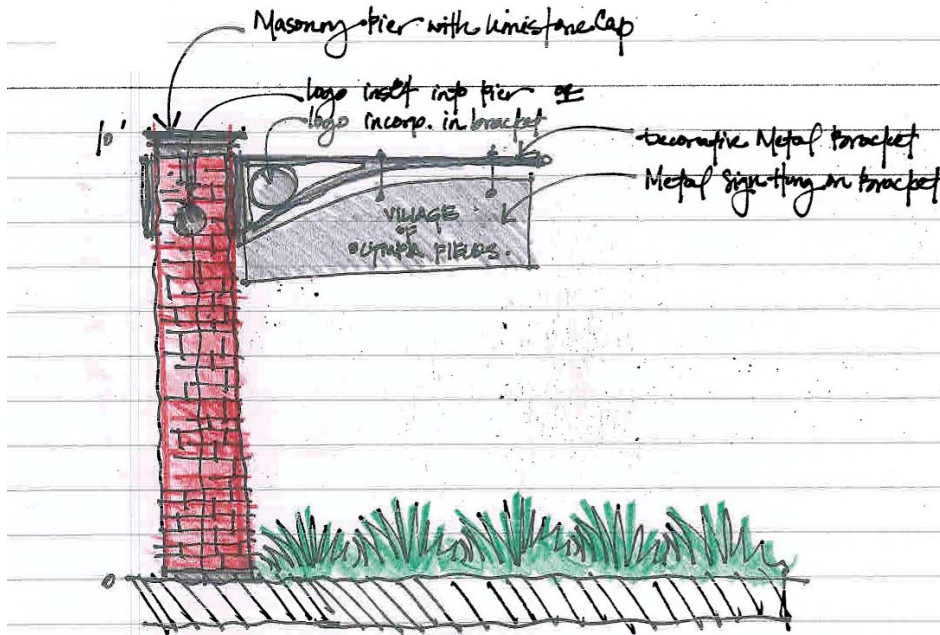 Masonry pier with limestone Cap
logo inset into pier or
logo incorp. in bracket
10'
Decorative Metal Bracket
Metal Sign Hung on Bracket
VILLAGE
OF
OLYMPIA FIELDS.
0